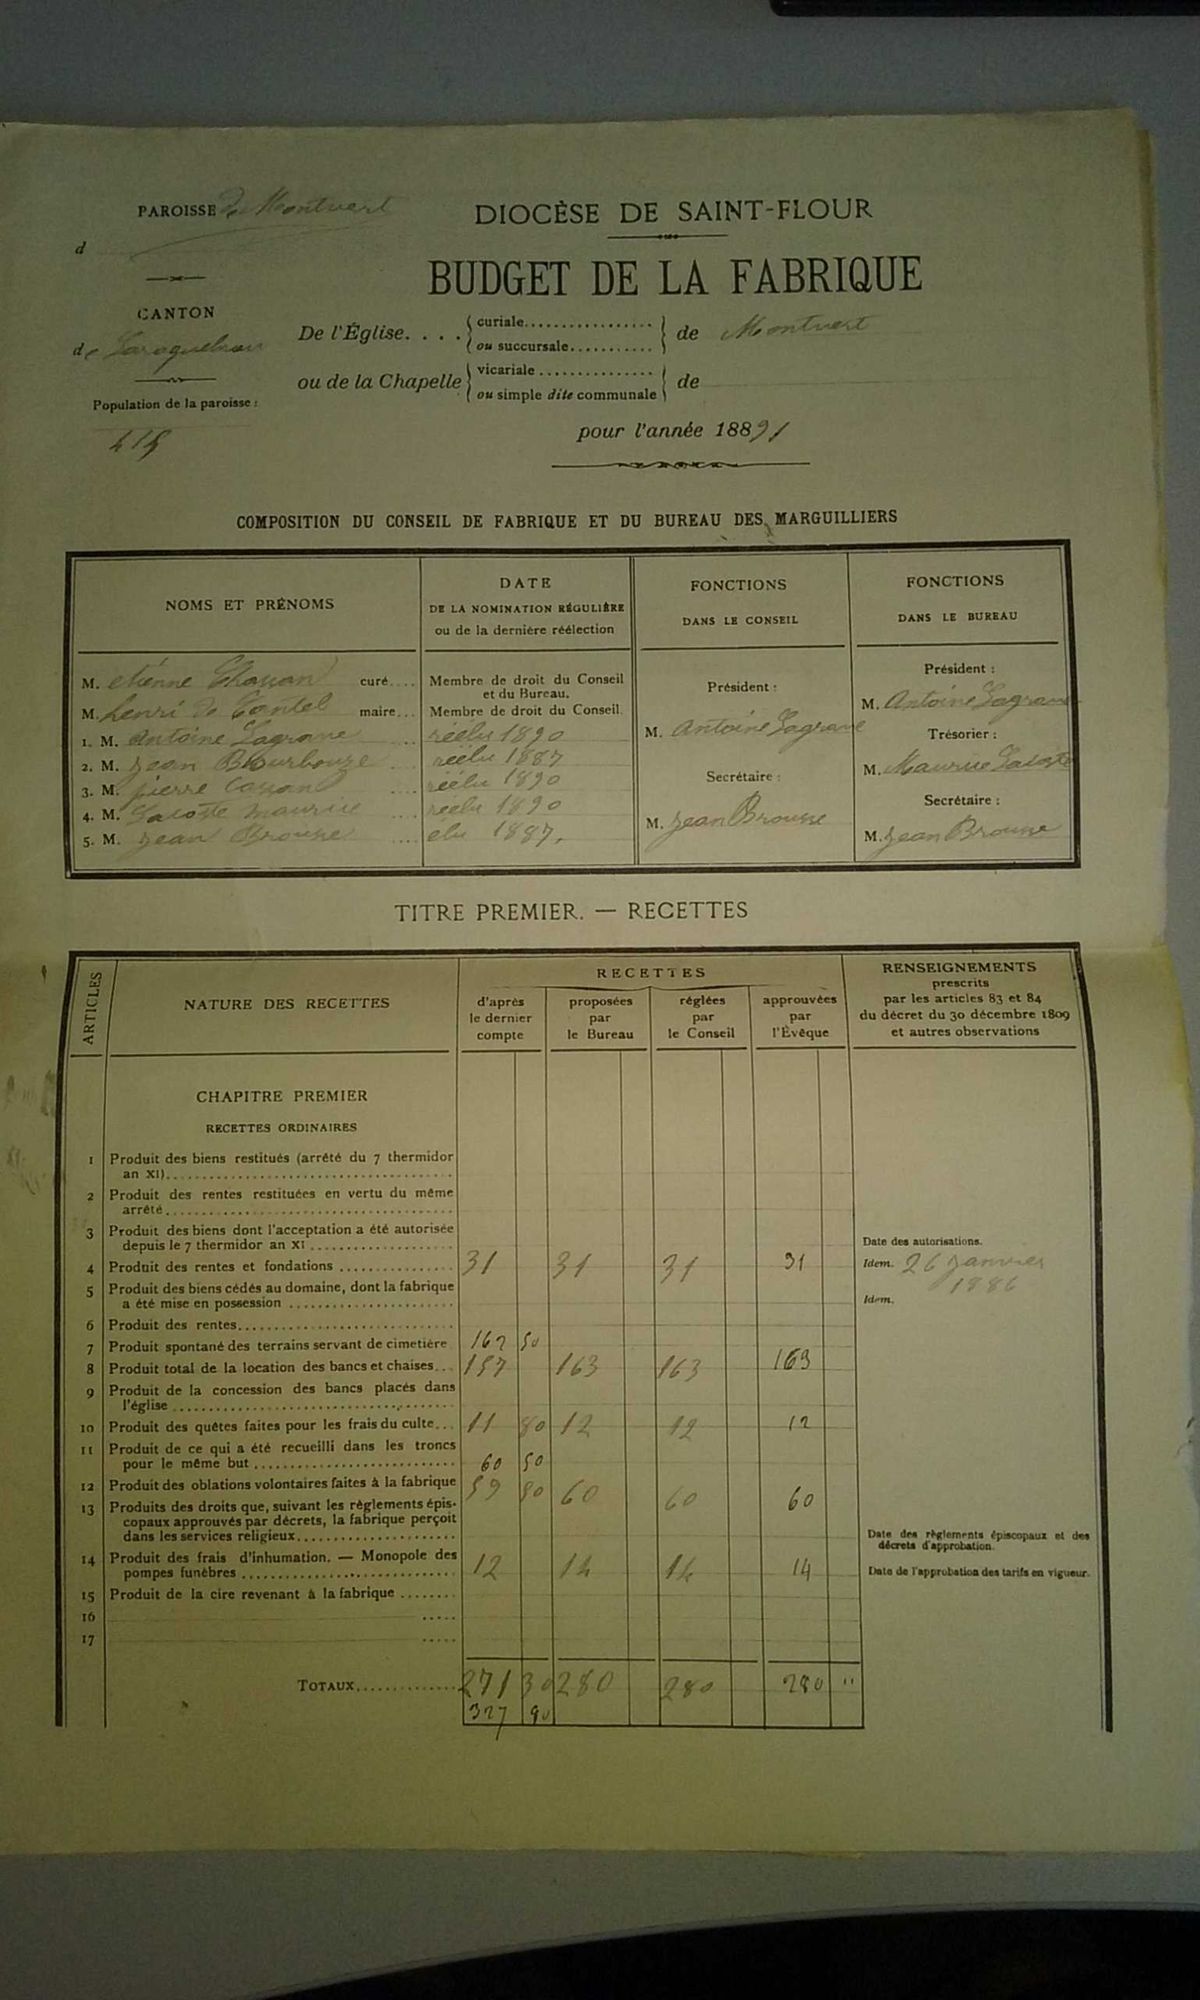 PAROISSE de Montvert
d
CANTON
de Laroquebrou
Population de la paroisse :
415
DIOCÈSE DE SAINT-FLOUR
BUDGET DE LA FABRIQUE
De l'Église. . . . curiale................. de Montvert
ou succursale...........
ou de la Chapelle vicariale ............... de
ou simple dite communale
pour l'année 18891
COMPOSITION DU CONSEIL DE FABRIQUE ET DU BUREAU DES MARGUILLIERS
NOMS ET PRÉNOMS
DATE
DE LA NOMINATION RÉGULIÈRE
ou de la dernière réélection
FONCTIONS
DANS LE CONSEIL
FONCTIONS
DANS LE BUREAU
M. etienne curé.... Membre de droit du Conseil
et du Bureau.
M. henri de maire... Membre de droit du Conseil.
1. M. Antoine Lagrane réélu 1890
2. M. Jean réélu 1887
3. M. pierre réélu 1890
4. M. Lacoste maurice réélu 1890
5. M. Jean Brousse elu 1887.
Président :
M. Antoine Lagrane
Secrétaire :
M. Jean Brousse
Président :
M. Antoine Lagrane
Trésorier :
M. Maurice Lacoste
Secrétaire :
M. Jean Brousse
TITRE PREMIER. — RECETTES
ARTICLES
NATURE DES RECETTES
RECETTES
d'après
le dernier
compte
proposées
par
le Bureau
réglées
par
le Conseil
approuvées
par
l'Évêque
RENSEIGNEMENTS
prescrits
par les articles 83 et 84
du décret du 30 décembre 1809
et autres observations
CHAPITRE PREMIER
RECETTES ORDINAIRES
1 Produit des biens restitués (arrêté du 7 thermidor
an XI)
2 Produit des rentes restituées en vertu du même
arrêté
3 Produit des biens dont l'acceptation a été autorisée
depuis le 7 thermidor an XI Date des autorisations.
4 Produit des rentes et fondations 31 31 31 31 Idem. 26 janvier
1886
5 Produit des biens cédés au domaine, dont la fabrique
a été mise en possession Idem.
6 Produit des rentes
7 Produit spontané des terrains servant de cimetière 162 50
8 Produit total de la location des bancs et chaises... 157 163 163 163
9 Produit de la concession des bancs placés dans
l'église
10 Produit des quêtes faites pour les frais du culte... 11 80 12 12 12
11 Produit de ce qui a été recueilli dans les troncs
pour le même but 60 50
12 Produit des oblations volontaires faites à la fabrique 59 80 60 60 60
13 Produits des droits que, suivant les règlements épis-
copaux approuvés par décrets, la fabrique perçoit
dans les services religieux Date des règlements épiscopaux et des
décrets d'approbation.
14 Produit des frais d'inhumation. — Monopole des
pompes funèbres 12 14 14 14 Date de l'approbation des tarifs en vigueur.
15 Produit de la cire revenant à la fabrique
16
17
TOTAUX 271 30 280 280 280 "
327 90